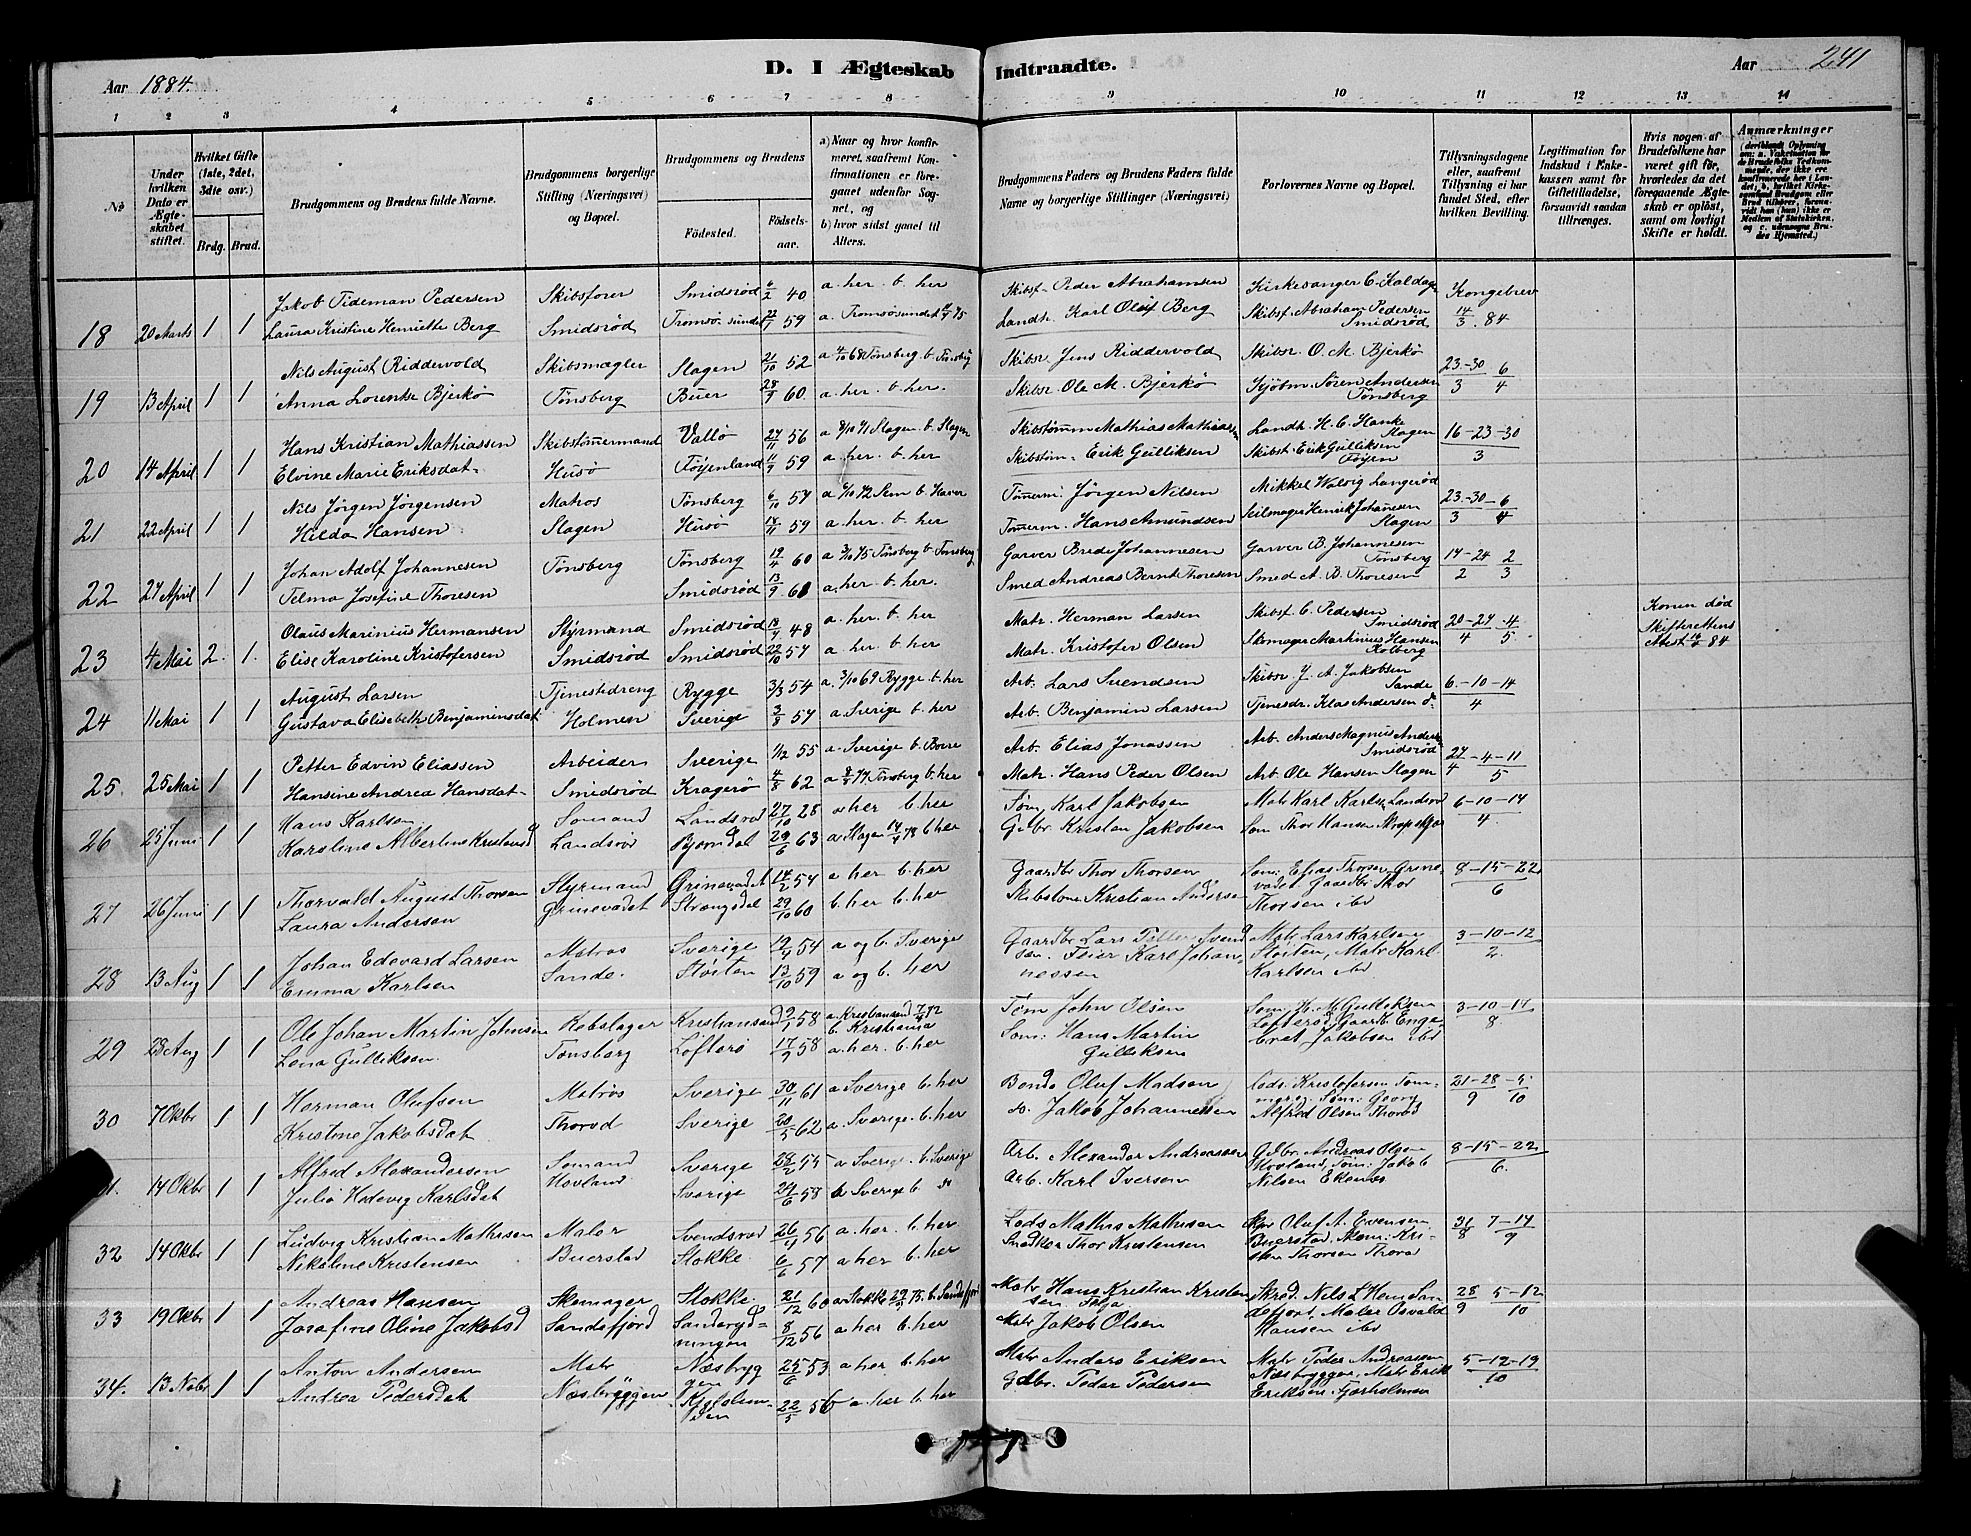 Aar 1884.
D. I Ægteskab Indtraadte.
Aar 241
1 2 3 4 5 6 7 8 9 10 11 12 13 14
No
Under hvilken Dato er Ægteskabet stiftet.
Hvilket Gifte (1ste, 2det, 3die osv.)
Brdg. Brud.
Brudgommens og Brudens fulde Navne.
Brudgommens borgerlige Stilling (Næringsvei) og Bopæl.
Brudgommens og Brudens
Fødested. Fødselsaar.
a) Naar og hvor konfirmeret, saafremt Konfirmationen er foregaaet udenfor Sognet, og
b) hvor sidst gaaet til Alters.
Brudgommens Faders og Brudens Faders fulde Navne og borgerlige Stillinger (Næringsvei)
Forlovernes Navne og Bopæl.
Tillysningsdagene eller, saafremt Tillysning ei har fundet Sted, efter hvilken Bevilling.
Legitimation for Indskud i Enkekassen samt for Giftetilladelse, forsaavidt saadan tiltrænges.
Hvis nogen af Brudefolkene har været gift før, hvorledes da det foregaaende Ægteskab er opløst, samt om lovligt Skifte er holdt.
Anmærkninger
Jakob Tideman Pedersen Skibsfører Smidsrød 6/2 40 a. her. b. her Skibsf. Peder Abrahamsen Kirkesanger C. Kaldager Kongebrev
18 20 Marts 1 1 Laura Kristine Henriette Berg Smidsrød Tromsøsundet 22/7 59 a. Tromsøsundet Landh. Karl Olaf Berg Skibsf. Abraham Pedersen Smidsrød 14/3 84
Nils August Riddervold Skibsmægler Slagen 21/10 52 a 4/10 68 Tønsberg b. Tønsberg Skibsr. Jens Riddervold Skibsr. O. M. Bjerkø 23-30/3 6/4
19 13 April 1 1 Anna Lorentse Bjerkø Tønsberg Buer 28/9 60 a. her. b. her. Skibsr Ole M. Bjerkø Kjøbm. Søren Andersen Tønsberg
Hans Kristian Mathiassen Skibstømmermand Vallø 27/11 56 a 8/10 71 Slagen b. Slagen Skibstømm Mathias Mathiassen Landh. H. C. Hanke Slagen 16-23-30/3
20 14 April 1 1 Elvine Marie Eriksdat. Husø Føyenland 11/9 59 a. her. b. her Skibstøm. Erik Gulliksen Skibst. Erik Gulliksen Føyen
Nils Jørgen Jørgensen Matros Tønsberg 6/10 57 a 6/10 72 Sem b. Havre Tømerm. Jørgen Nilsen Mikkel Walvig Langerød 23-30/3 6/4
21 22 April 1 1 Hilda Hansen Slagen Husø 14/11 59 a. her. b. her Tømerm. Hans Amundsen Seilmager Henrik Johanesen Slagen
Johan Adolf Johannesen Tønsberg Tønsberg 19/4 60 a 3/10 75 Tønsberg b. Tønsberg Garver Brede Johannesen Garver B. Johannesen Tønsberg 17-24/2 2/3
22 27 April 1 1 Telma Josefine Thoresen Smidsrød 13/9 61 a. her b. her. Smed Andreas Bernt Thoresen Smed A. B. Thoresen
Olaus Marinius Hermansen Styrmand Smidsrød 48 a. her. b. her Matr. Herman Larsen Skibsf. C. Pedersen Smidsrød 20-27/4 4/5 Konen død
23 4 Mai 2. 1. Elise Karoline Kristofersen Smidsrød Smidsrød 22/10 57 a. her b. her Matr. Kristofer Olsen Skomager Martinius Hansen Kolberg Skifterettens Attest 84
August Larsen Tjenestdreng Rygge 3/3 54 a. 3/10 69 Rygge. b. her Arb. Lars Svendsen Skibsr. J. A. Jakobsen Sande 6-10-14/4
24 11 Mai 1 1 Gustava Elisabeth Benjaminsdat Holmen Sverige 3/8 57 a. Sverige b. her Arb. Benjamin Larsen Tjenesdr. Klas Andersen do
Petter Edvin Eliassen Arbeider Sverige 1/12 55 a. Sverige b. Borre Arb. Elias Jonassen Arb. Anders Magnus Anders Smidsrød 27/4 4-11/5
25. 25 Mai 1 1 Hansine Andrea Hansdat. Smidsrød Kragerø 4/8 62 a 77 Tønsberg b. her Matr. Hans Peder Olsen Arb Ole Hansen Slagen
Hans Karlsen Sømand Landsrød 27/10 28 a her b. her Søm. Karl Jakobsen Matr Karl Karls. Landsrød 6-10-14/4
26 25 Juni 1 1 Karoline Albertine Kristensd Landsrød Bjørndal 29/6 63 a. Slagen 14/4 78 b her Gdbr. Kristen Jakobsen Søm Thor Hansen
Thorvald August Thorsen Styrmand Grinevadet 14/2 54 a her b. her Gaardbr Thor Thorsen Søm. Elias Thorsen Grinevadet Gaardbr Thor 8-15-22/6
27 26 Juni 1 1 Laura Andersen Grinevadet Strængsdal 29/10 60 b. her b. her Skibstøm Kristian Anders Thorsen ibd
Johan Edevard Larsen Matros Sverige 19/4 54 a og b. Sverige Gaardbr Lars Petter Svend Matr. Lars Karlsen 3-10-12/2
28 13 Aug 1 1 Emma Karlsen Sande. Støiten 13/10 59 a og b. her sen. Feier Karl Johannessen Støiten, Matr Karl Karlsen ibd
Ole Johan Martin Johnsen Rebslager Kristiansand 2/1 58 a. Kristiansand b. Kristiania Tøm John Olsen Søm. H. M. Gulliksen 3-10-17/8
29 28 Aug 1 1 Lena Gulliksen. Tønsberg Lofterø 17/9 58 a. her. b. her Søm: Hans Martin Gulliksen Lofterød, Gaardb. Engebret Jakobsen ibd
Herman Olufsen Matros Sverige 30/11 61 a Sverige b. her Bonde Oluf Madsen Lods: Kristofersen Tømmerø; Søm: Georg 21-28/9 5/10
30 7 Oktbr 1 1 Kristine Jakobsdat Thorød Sverige 20/5 62 a. Sverige. b. her do. Jakob Johannessen Alfred Olsen Thorød
Alfred Alexandersen Sømand Sverige 28/2 55 a Sverige. b. Sverige Arb. Alexander Andreassen Gdbr. Andreas Olsen 8-15-22/6.
31. 14 Oktbr 1 1 Julia Hedevig Karlsdat Hovland Sverige 24/6 58 b Sverige b do Arb. Karl Iversen Hovland, Søm: Jakob Nilsen Ekenes
Ludvig Kristian Mathisen Maler Svendsrød 26/4 56 a. her. b. her Lods Mathis Mathisen Oluf A. Evensen 31/8 7-14/9
32 14 Oktbr 1 1 Nikoline Kristensen Buerstad Stokke 6/6 57 a her b. her Snedker Thor Kristensen Buerstad, Kristen Thorsen Thorød
Andreas Hansen Skomager Stokke 21/12 60 a Stokke 29/9 75. b. Sandefjord Matr Hans Kristian Kristensen Skræd. Nils L. Hem Sandefjord, Maler Osvald 28/9 5-12/10
33 19 Oktbr 1 1 Josefine Oline Jakobsd Sandefjord Sandbrygdningen 8/12 56 a her b. her Matr Jakob Olsen Hansen ibd
Anton Andersen Matr Næsbryggen 25/6 53 a her b. her Matr Anders Eriksen Matr Peder Andreassen 5-12-19/10
34. 13 Novbr 1 1 Andrea Pedersdat Næsbryggen 22/5 56 a. her b. her Gdbr. Peder Pedersen Næsbryggen, Matr Erik Eriksen Fjærholmen